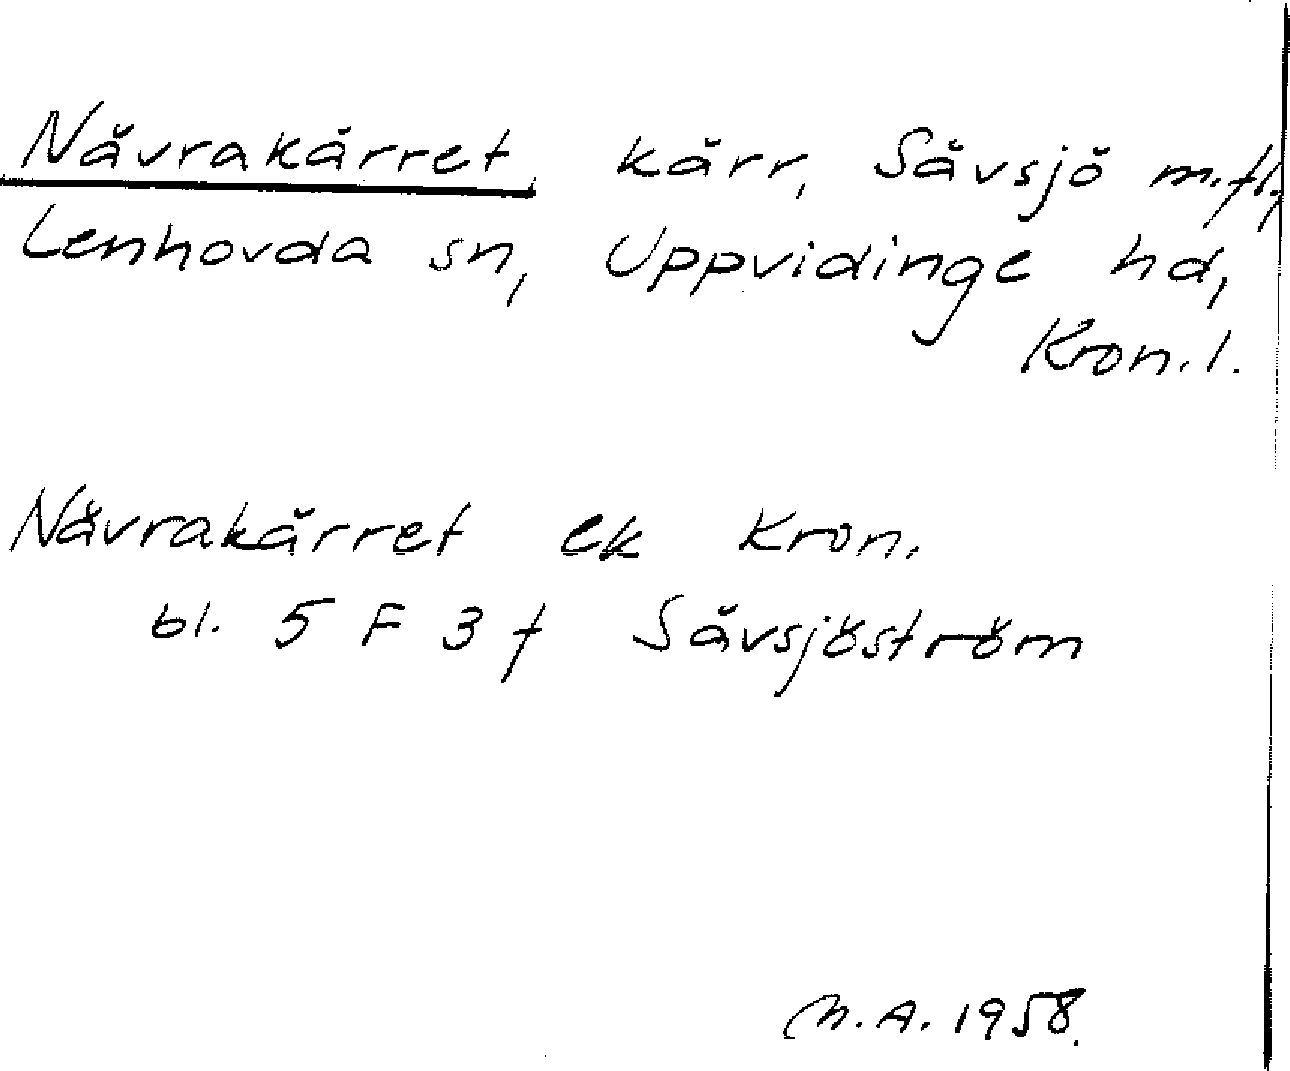 Nävrakärret, kärr, Sävsjö m.fl.,
Lenhovda sn, Uppvidinge hd,
Kron.l.
Nävrakärret ek Kron.
bl. 5 F 3 f Sävsjöström
M.A. 1958.